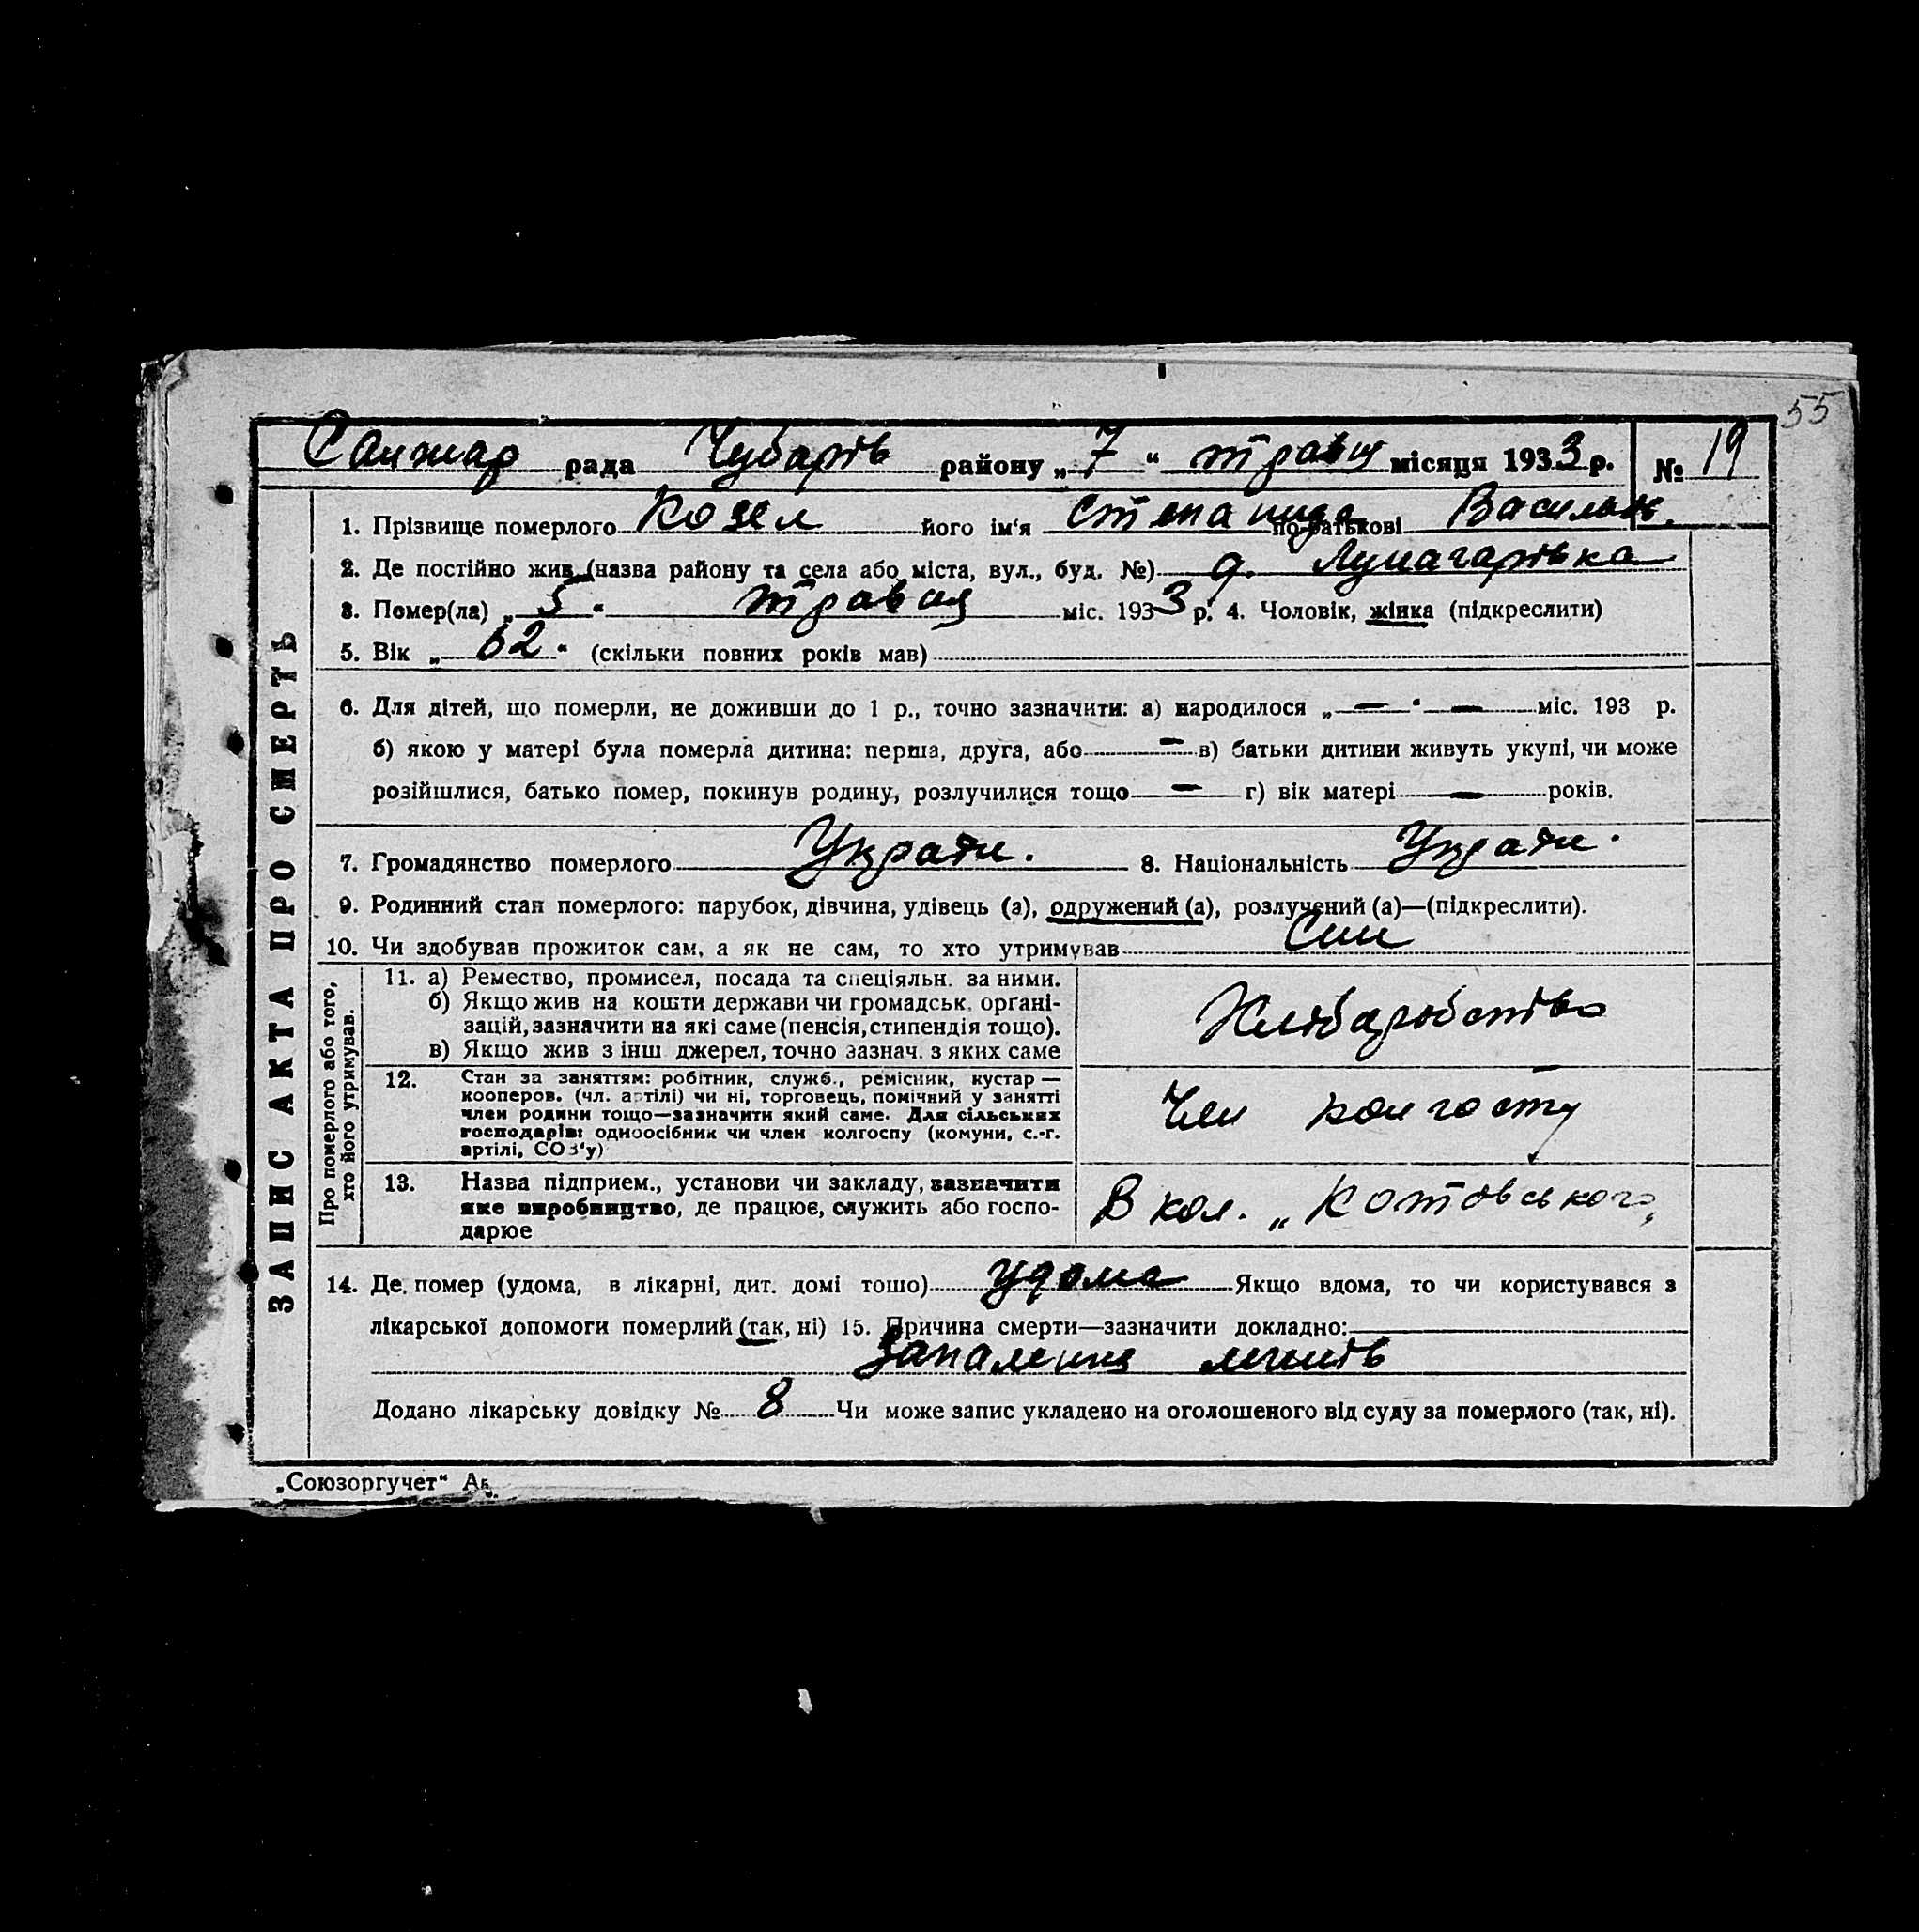 55
Санжар рада Чубарів району „7“ травня місяця 1933 р. № 19
ЗАПИС АКТА ПРО СМЕРТЬ
1. Прізвище померлого Козел його ім‘я Степанида по-батькові Васильів.
2. Де постійно жив (назва району та села або міста, вул., буд. №) д. Луначарівка
3. Помер(ла) „5“ травня міс. 1933 р. 4. Чоловік, жінка (підкреслити)
5. Вік „62“ (скільки повних років мав)
6. Для дітей, що померли, не доживши до 1 р., точно зазначити: а) народилося „—“ — міс. 193 р.
б) якою у матері була померла дитина: перша, друга, або — в) батьки дитини живуть укупі, чи може
розійшлися, батько помер, покинув родину, розлучилися тощо — г) вік матері — років.
7. Громадянство померлого Україн. 8. Національність Україн.
9. Родинний стан померлого: парубок, дівчина, удівець (а), одружений (а), розлучений (а)—(підкреслити).
10. Чи здобував прожиток сам, а як не сам, то хто утримував Син
Про померлого або того,
хто його утримував.
11. а) Ремество, промисел, посада та спеціяльн. за ними.
б) Якщо жив на кошти держави чи громадськ. орґані-
зацій, зазначити на які саме (пенсія, стипендія тощо).
в) Якщо жив з інш джерел, точно зазнач. з яких саме
Хліборобство
12. Стан за заняттям: робітник, служб., ремісник, кустар —
кооперов. (чл. артілі) чи ні, торговець, помічний у занятті
член родини тощо—зазначити який саме. Для сільських
господарів: одноосібник чи член колгоспу (комуни, с.-г.
артілі, СОЗ‘у)
Член колгоспу
13. Назва підприєм., установи чи закладу, зазначити
яке виробництво, де працює, служить або госпо-
дарює
В кол. „Котовського„
14. Де помер (удома, в лікарні, дит. домі тошо) удома Якщо вдома, то чи користувався з
лікарської допомоги померлий (так, ні) 15. Причина смерти—зазначити докладно:
Запалення легенів
Додано лікарську довідку № 8 Чи може запис укладено на оголошеного від суду за померлого (так, ні).
„Союзоргучет“